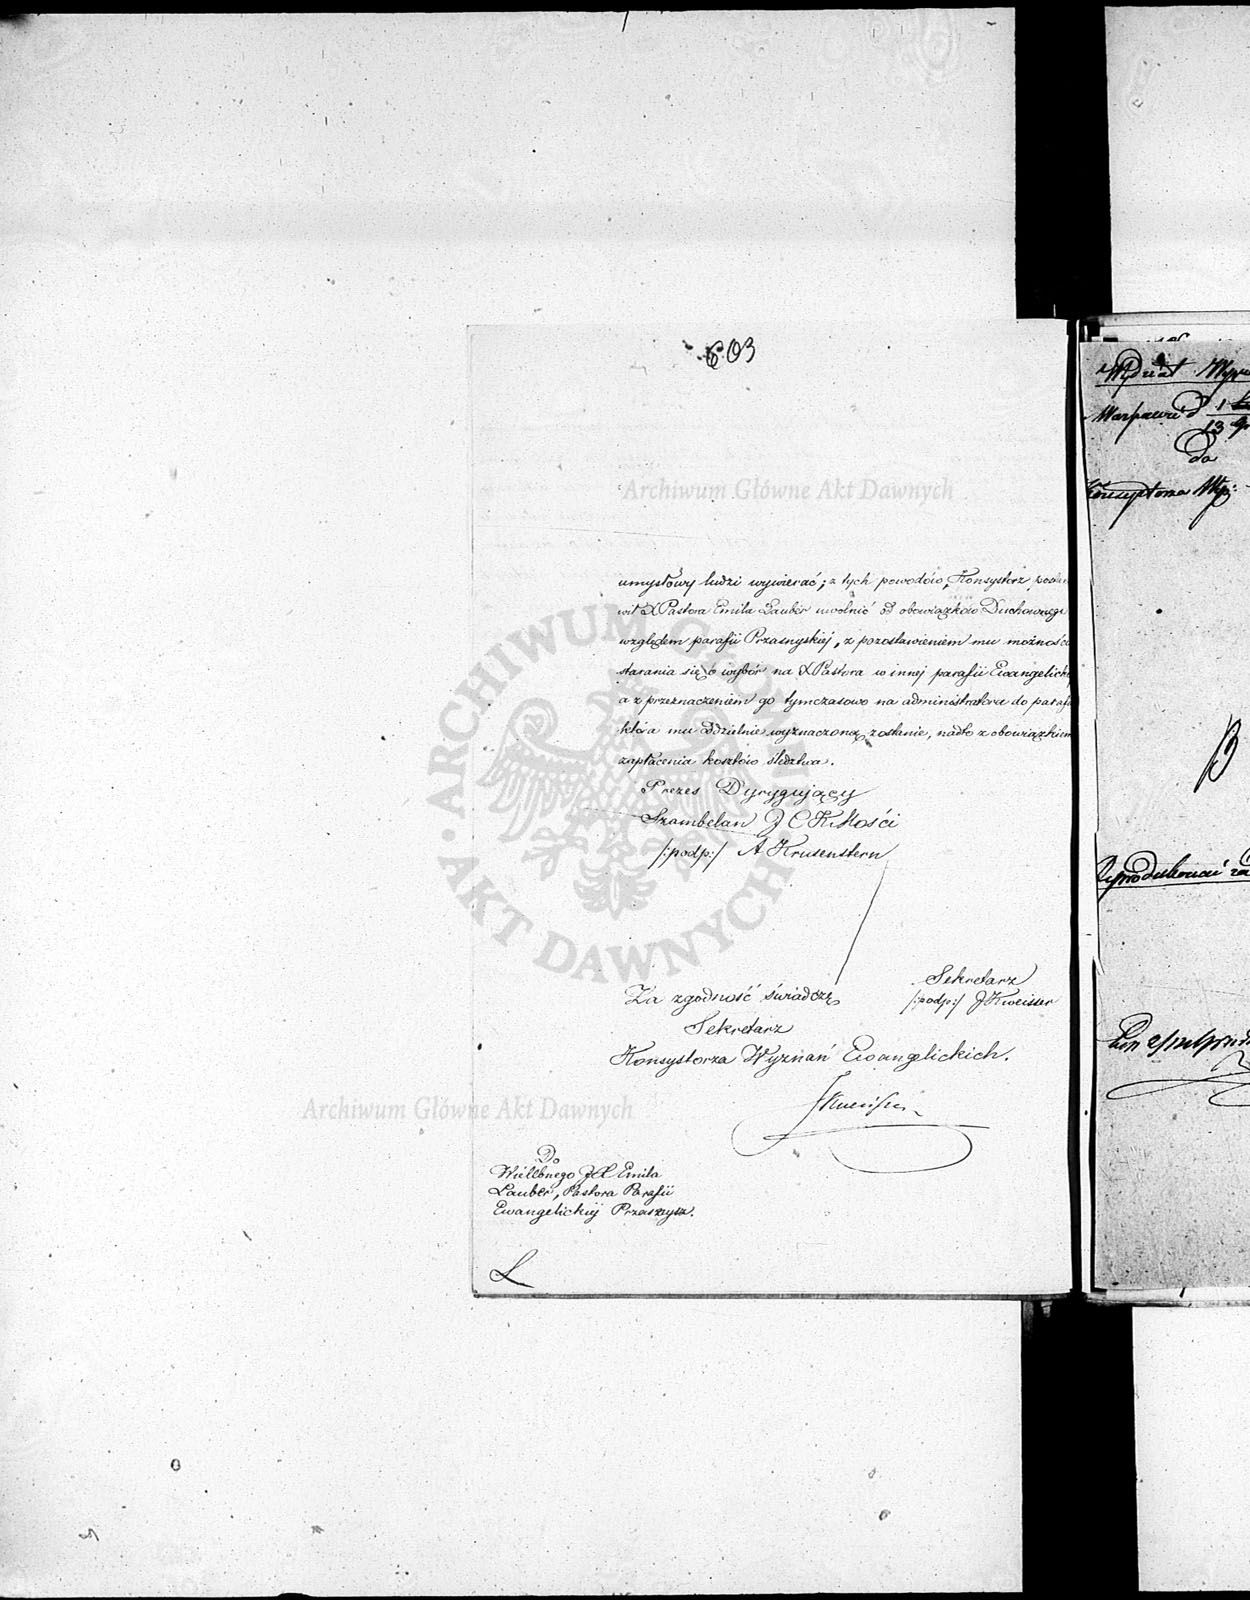 603
Archiwum Główne Akt Dawnych
umysłowy ludzi wywierać; z tych powodów, Konsystorz postano
wił X Pastora Emila Lauber uwolnić od obowiązków Duchownego
względem parafii Przasnyskiej, z pozostawieniem mu możności
starania się o wybór na X Pastora w innej parafii Ewangelick
a z przeznaczeniem go tymczasowo na administratora do parafi
która mu oddzielnie wyznaczoną zostanie, nadto z obowiązkiem
zapłacenia kosztów śledztwa.
Prezes Dyrygujący
Szambelan J C K Mości
/:podp:/ A Krusenstern
ARCHIWUM GŁÓWNE AKT DAWNYCH
Sekretarz
/:podp:/ J Kweisser
Za zgodność świadczę
Sekretarz
Konsystorza Wyznań Ewangelickich.
Archiwum Główne Akt Dawnych
Do
Wielbnego JX Emila
Lauber, Pastora Parafii
Ewangelickiej Przasnysz.
L
Wydział
1
13
do
B